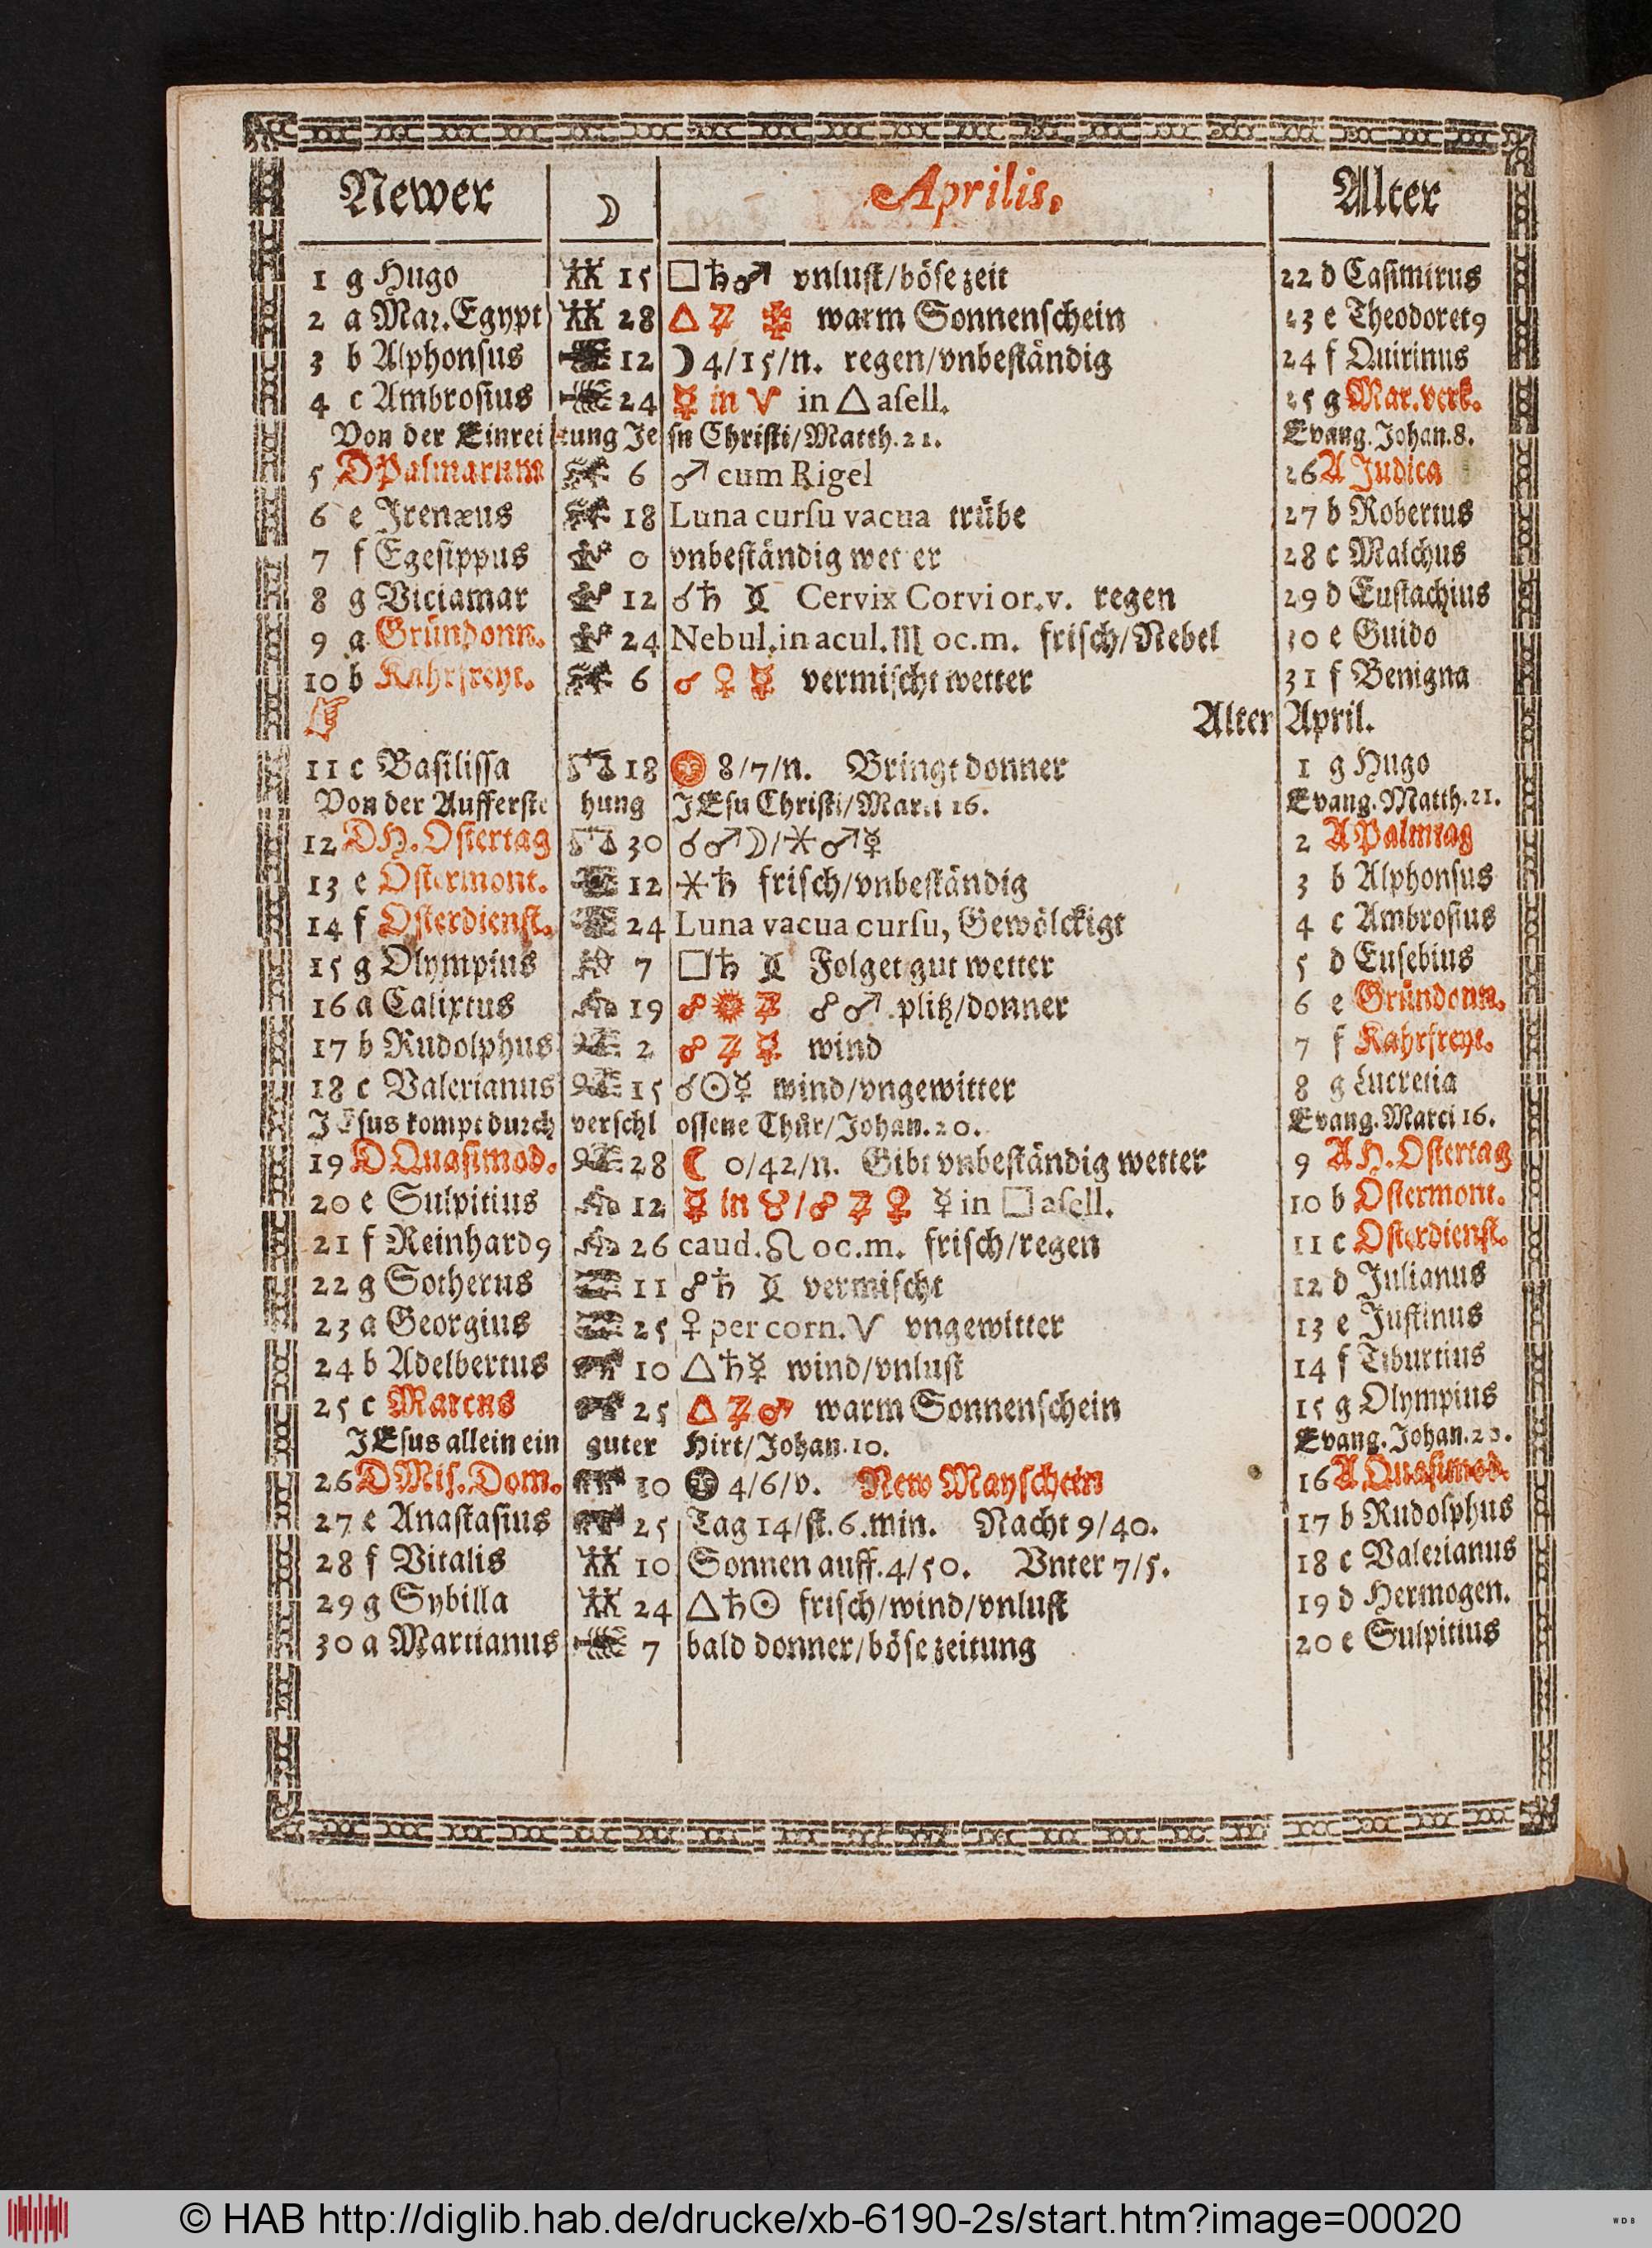 Newer ☽ Aprilis. Alter
1 g Hugo 15 □♄♂ vnlust/böse zeit 22 d Casimirus
2 a Mar. Egypt 28 △♃ warm Sonnenschein 23 e Theodoret9
3 b Alphonsus 12 ☽ 4/15/n. regen/vnbeständig 24 f Quirinus
4 c Ambrosius 24 ☿ in ♈ in △ asell. 25 g Mar. verk.
Von der Einreitung Jesu Christi/Matth. 21. Evang. Johan. 8.
5 D Palmarum 6 ♂ cum Rigel 26 A Judica
6 e Jrenæus 18 Luna cursu vacua trübe 27 b Robertus
7 f Egesippus 0 vnbeständig wetter 28 c Malchus
8 g Viciamar 12 ☌♄ Cervix Corvi or. v. regen 29 d Eustachius
9 a Gründonn. 24 Nebul. in acul. ♏ oc. m. frisch/Nebel 30 e Guido
10 b Kahrfreyt. 6 ☌♀☿ vermischt wetter 31 f Benigna
Alter April.
11 c Basilissa 18 8/7/n. Bringt donner 1 g Hugo
Von der Aufferstehung JEsu Christi/Marci 16. Evang. Matth. 21.
12 D H. Ostertag 30 ☌♂☽/⚹♂☿ 2 A Palmtag
13 e Ostermont. 12 ⚹♄ frisch/vnbeständig 3 b Alphonsus
14 f Osterdienst. 24 Luna vacua cursu, Gewölckigt 4 c Ambrosius
15 g Olympius 7 □♄ Folget gut wetter 5 d Eusebius
16 a Calixtus 19 ☍☀♃ ☍♂ plitz/donner 6 e Gründonn.
17 b Rudolphus 2 ☍♃☿ wind 7 f Kahrfreyt.
18 c Valerianus 15 ☌☉☿ wind/vngewitter 8 g Lucretia
JEsus kompt durch verschlossene Thür/Johan. 20. Evang. Marci 16.
19 D Quasimod. 28 ☾ 0/42/n. Gibt vnbeständig wetter 9 A H. Ostertag
20 e Sulpitius 12 ☿ in ♉/☍♃♀ ☿ in □ asell. 10 b Ostermont.
21 f Reinhard9 26 caud. ♌ oc. m. frisch/regen 11 c Osterdienst.
22 g Sotherus 11 ☍♄ vermischt 12 d Julianus
23 a Georgius 25 ♀ per corn. ♈ vngewitter 13 e Justinus
24 b Adelbertus 10 △♄☿ wind/vnlust 14 f Tiburtius
25 c Marcus 25 △♃♂ warm Sonnenschein 15 g Olympius
JEsus allein ein guter Hirt/Johan. 10. Evang. Johan. 20.
26 D Mis. Dom. 10 4/6/v. New Mayschein 16 A Quasimod.
27 e Anastasius 25 Tag 14/st. 6. min. Nacht 9/40. 17 b Rudolphus
28 f Vitalis 10 Sonnen auff. 4/50. Vnter 7/5. 18 c Valerianus
29 g Sybilla 24 △♄☉ frisch/wind/vnlust 19 d Hermogen.
30 a Martianus 7 bald donner/böse zeitung 20 e Sulpitius
© HAB http://diglib.hab.de/drucke/xb-6190-2s/start.htm?image=00020
WDB